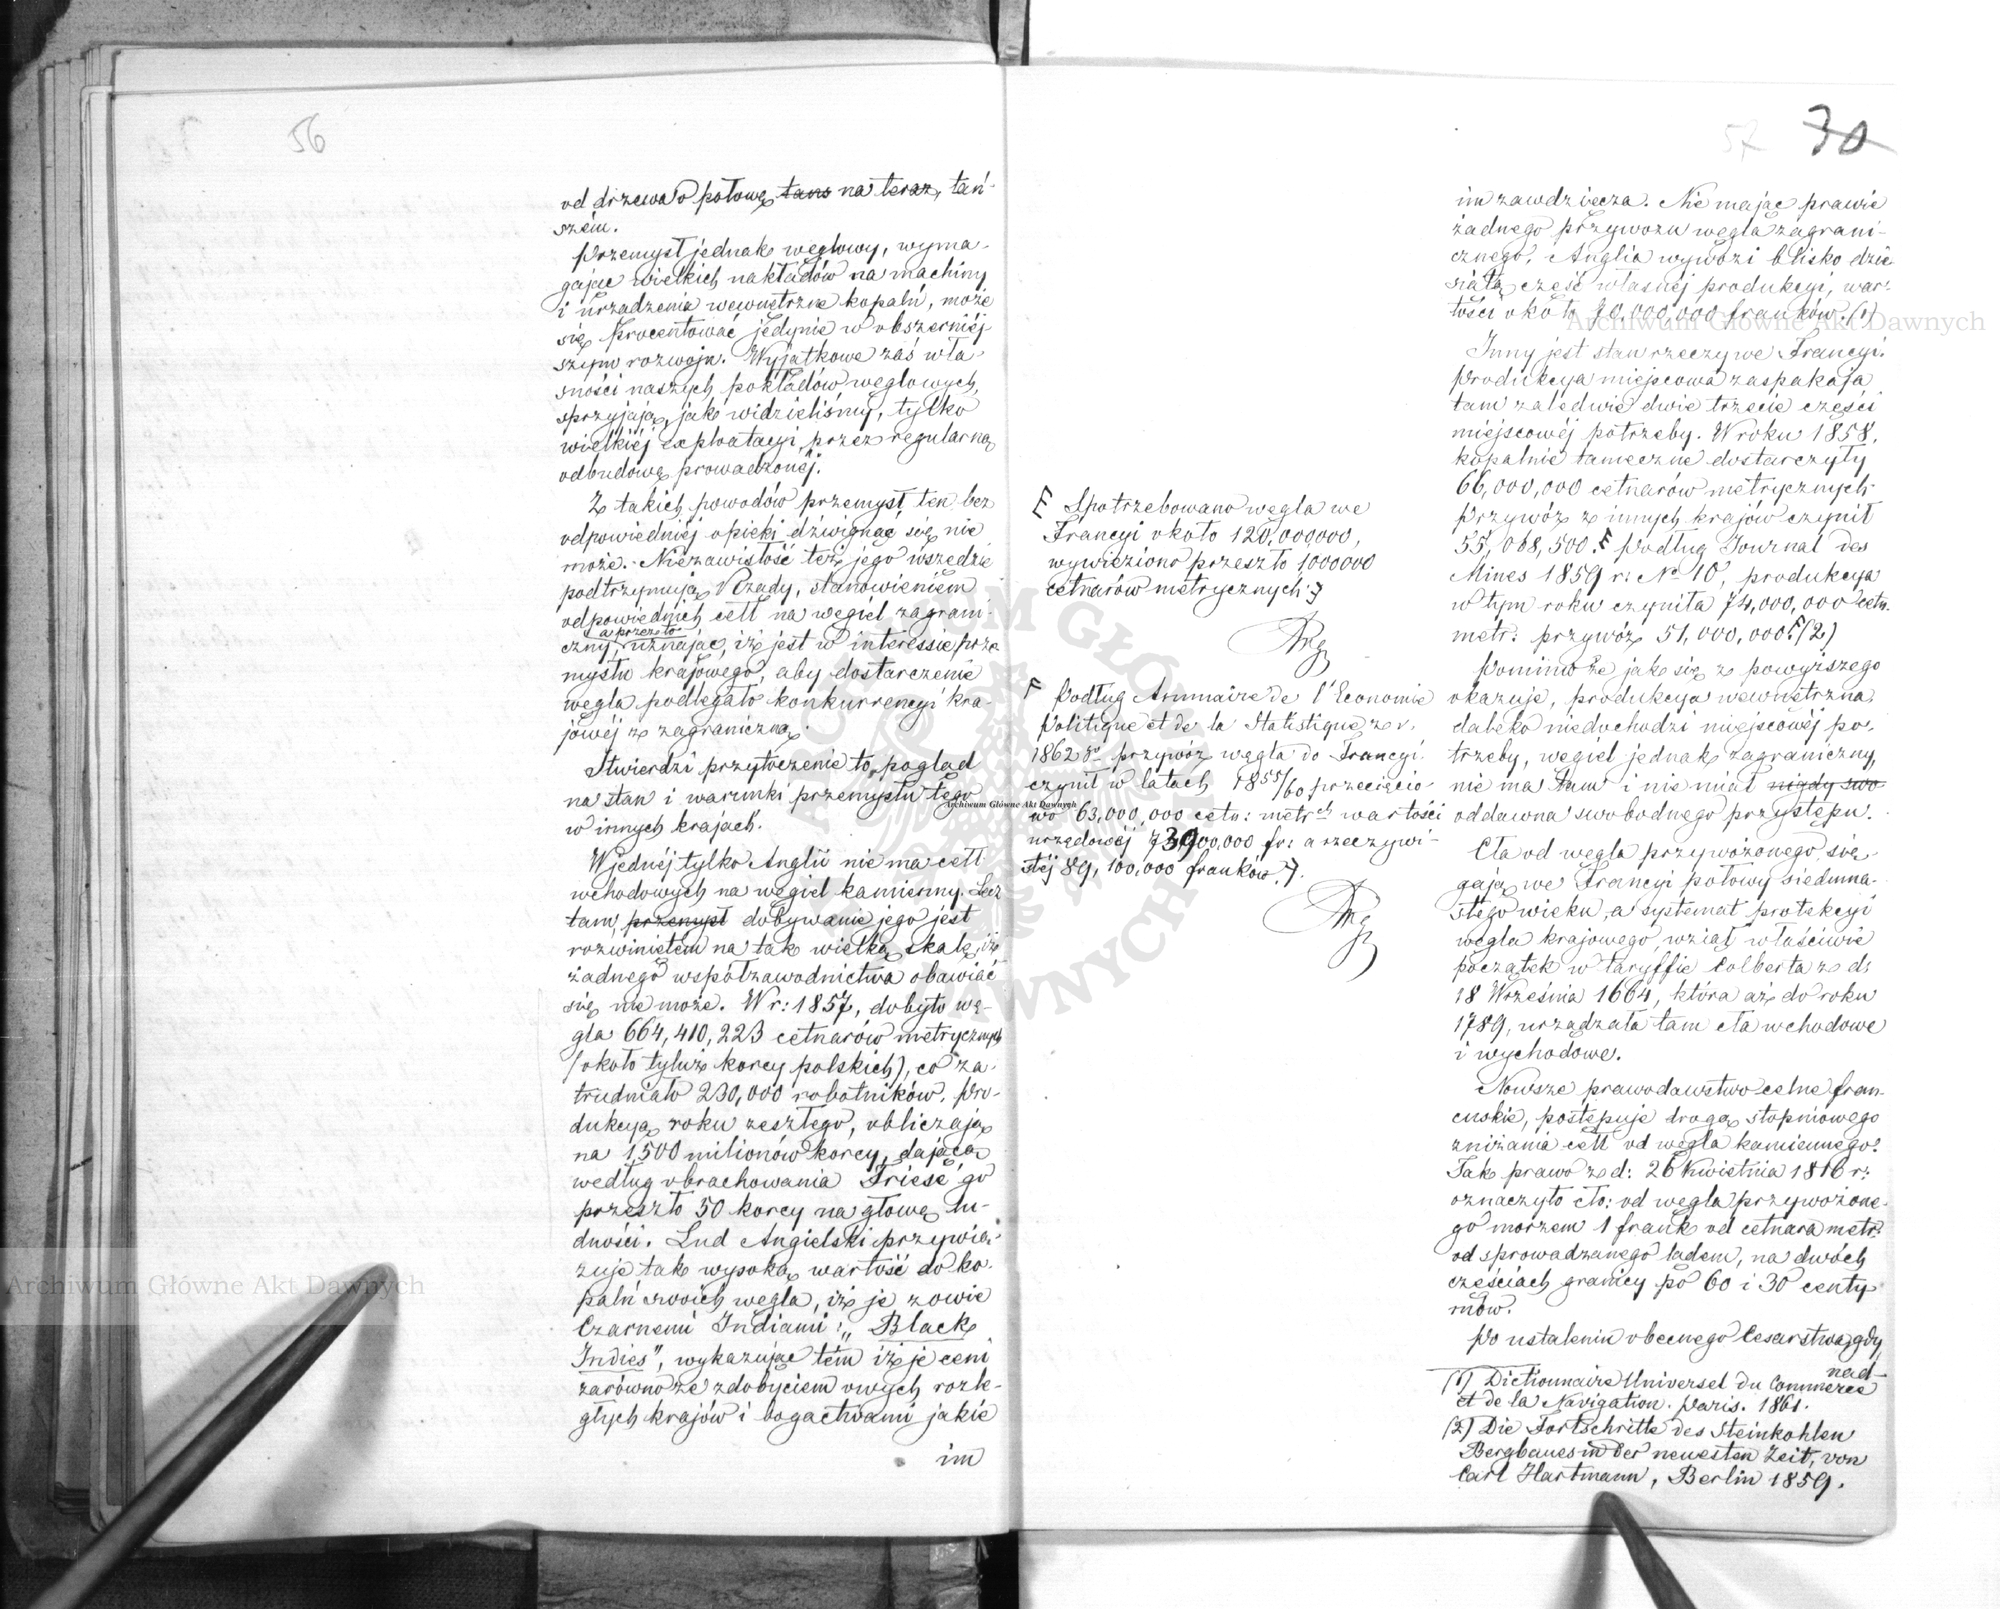 56
od drzewa o połowę tans na teraz, tań-
szém.
Przemysł jednak węglowy, wyma-
gając wielkich nakładów na machiny
i urządzenia wewnętrzne kopalń, może
się procentować jedynie w obszerniéj-
szym rozwoju. Wyjątkowe zaś wła-
sności naszych pokładów węglowych,
sprzyjają, jak widzieliśmy, tylko
wielkiéj exploatacyi przez regularną
odbudowę prowadzonéj.
Z takich powodów przemysł ten bez
odpowiedniéj opieki dźwignąć się nie
może. Niezawisłość też jego wszędzie
podtrzymują Rządy, stanowieniem
odpowiednich ceł na węgiel zagrani-
a przez to
czny, uznając, iż jest w interessie prze
mysłu krajowego, aby dostarczenie
węgla podlegało konkurrencyi kra-
jowéj z zagraniczną.
Stwierdzi przytoczenie to, pogląd
na stan i warunki przemysłu tego
w innych krajach.
W jednéj tylko Anglii nie ma ceł
wchodowych na węgiel kamienny. Lecz
tam, przemysł dobywanie jego jest
rozwiniętem na tak wielką skalę, iż
żadnego współzawodnictwa obawiać
się nie może. W r: 1857, dobyto wę-
gla 664,410,223 cetnarów metrycznych
(około tyluż korcy polskich), co za-
trudniało 230,000 robotników. Pro-
dukcyą roku zeszłego, obliczają
na 1,500 milionów korcy, dającą
według obrachowania Friese'go
przeszło 50 korcy na głowę lu-
dności. Lud Angielski przywią-
zuje tak wysoką wartość do ko-
palń swoich węgla, iż je zowie
Czarnemi Indiami: „Black
Indies", wykazując tém iż je ceni
zarówno ze zdobyciem owych rozle-
głych krajów i bogactwami jakie
im
57 30
im zawdzięcza. Nie mając prawie
żadnego przywozu węgla zagrani-
cznego, Anglia wywozi blisko dzie
siątą część własnéj produkcyi, war-
tości około 70,000,000 franków. (1)
Inny jest stan rzeczy we Francyi.
Produkcya miejscowa zaspakaja
tam zaledwie dwie trzecie części
miejscowéj potrzeby. W roku 1858,
kopalnie tameczne dostarczyły
66,000,000 cetnarów metrycznych
Przywóz z innych krajów czynił
55,068,500. Podług Journal des
Mines 1859 r: No 10, produkcya
w tym roku czyniła 74,000,000 cetn.
metr: przywóz 51,000,000. (2)
Pomimo że jak się z powyższego
okazuje, produkcya wewnętrzna
daleko niedochodzi miejscowéj po-
trzeby, węgiel jednak zagraniczny,
nie ma tam i nie miał nigdy swo
oddawna swobodnego przystępu.
Cła od węgla przywożonego się-
gają we Francyi połowy siedmna-
stego wieku, a systemat protekcyi
węgla krajowego wziął właściwie
początek w taryffie Colberta z d:
18 Września 1664, która aż do roku
1789, urządzała tam cła wchodowe
i wychodowe.
Nowsze prawodawstwo celne fran-
cuskie, postępuje drogą stopniowego
zniżania ceł od węgla kamiennego.
Tak prawo z d: 26 Kwietnia 1816 r:
oznaczyło cło: od węgla przywożone-
go morzem 1 frank od cetnara metr:
od sprowadzanego lądem, na dwóch
częściach granicy po 60 i 30 centy
mów.
Po ustaleniu obecnego Cesarstwa, gdy
nad-
(1) Dictionnaire Universel du Commerce
et de la Navigation. Paris. 1861.
(2) Die Fortschritte des Steinkohlen
Bergbaues in der neuesten Zeit, von
Carl Hartmann, Berlin 1859.
Spotrzebowano węgla we
Francyi około 120,000,000,
wywieziono przeszło 1000000
cetnarów metrycznych.
Podług Annuaire de l'Economie
Politique et de la Statistique z r.
1862go przywóz węgla do Francyi
czynił w latach 1855/60 przecięcio-
wo 63,000,000 cetn: metrch wartości
urzędowéj 7 fr: a rzeczywi-
stéj 89,100,000 franków.
Archiwum Główne Akt Dawnych
Archiwum Główne Akt Dawnych
Archiwum Główne Akt Dawnych